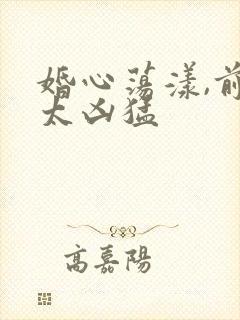 婚心蕩漾,前
太凶猛
高嘉陽